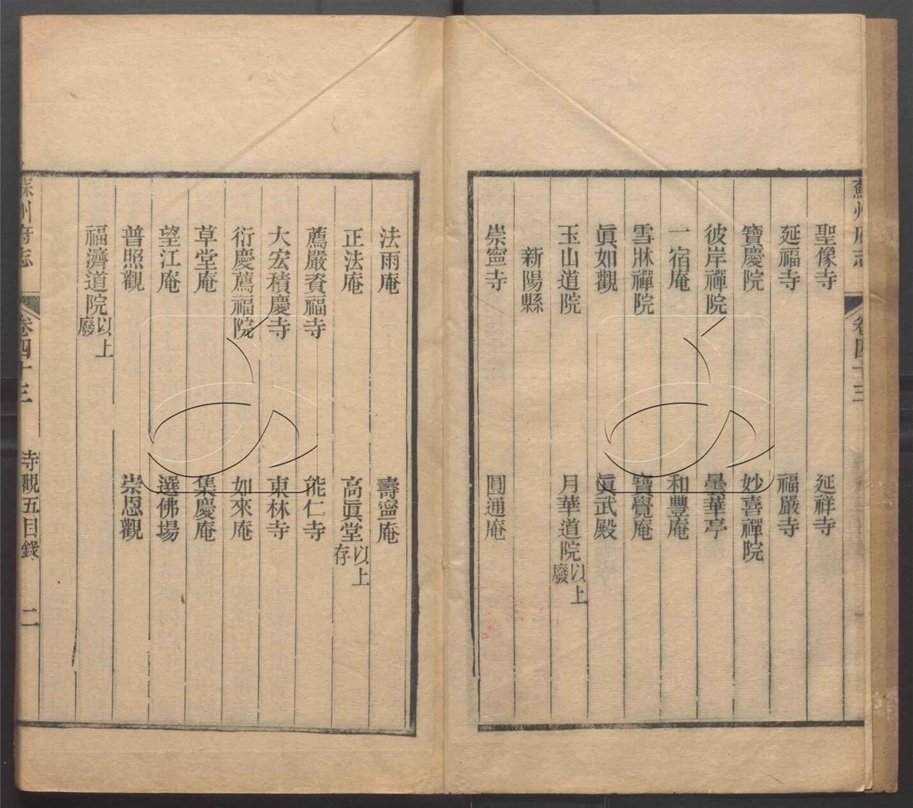 蘇州府志 卷四十三
聖像寺 延祥寺
延福寺 福嚴寺
寶慶院 妙喜禪院
彼岸禪院 曇華亭
一宿庵 和豐庵
雪牀禪院 寶覺庵
眞如觀 眞武殿
玉山道院 月華道院以上廢
新陽縣
崇寧寺 圓通庵
法雨庵 壽寧庵
正法庵 高眞堂以上存
薦嚴資福寺 能仁寺
大宏積慶寺 東林寺
衍慶薦福院 如來庵
草堂庵 集慶庵
望江庵 選佛場
普照觀 崇恩觀
福濟道院以上廢
蘇州府志 卷四十三 寺觀五目錄 二